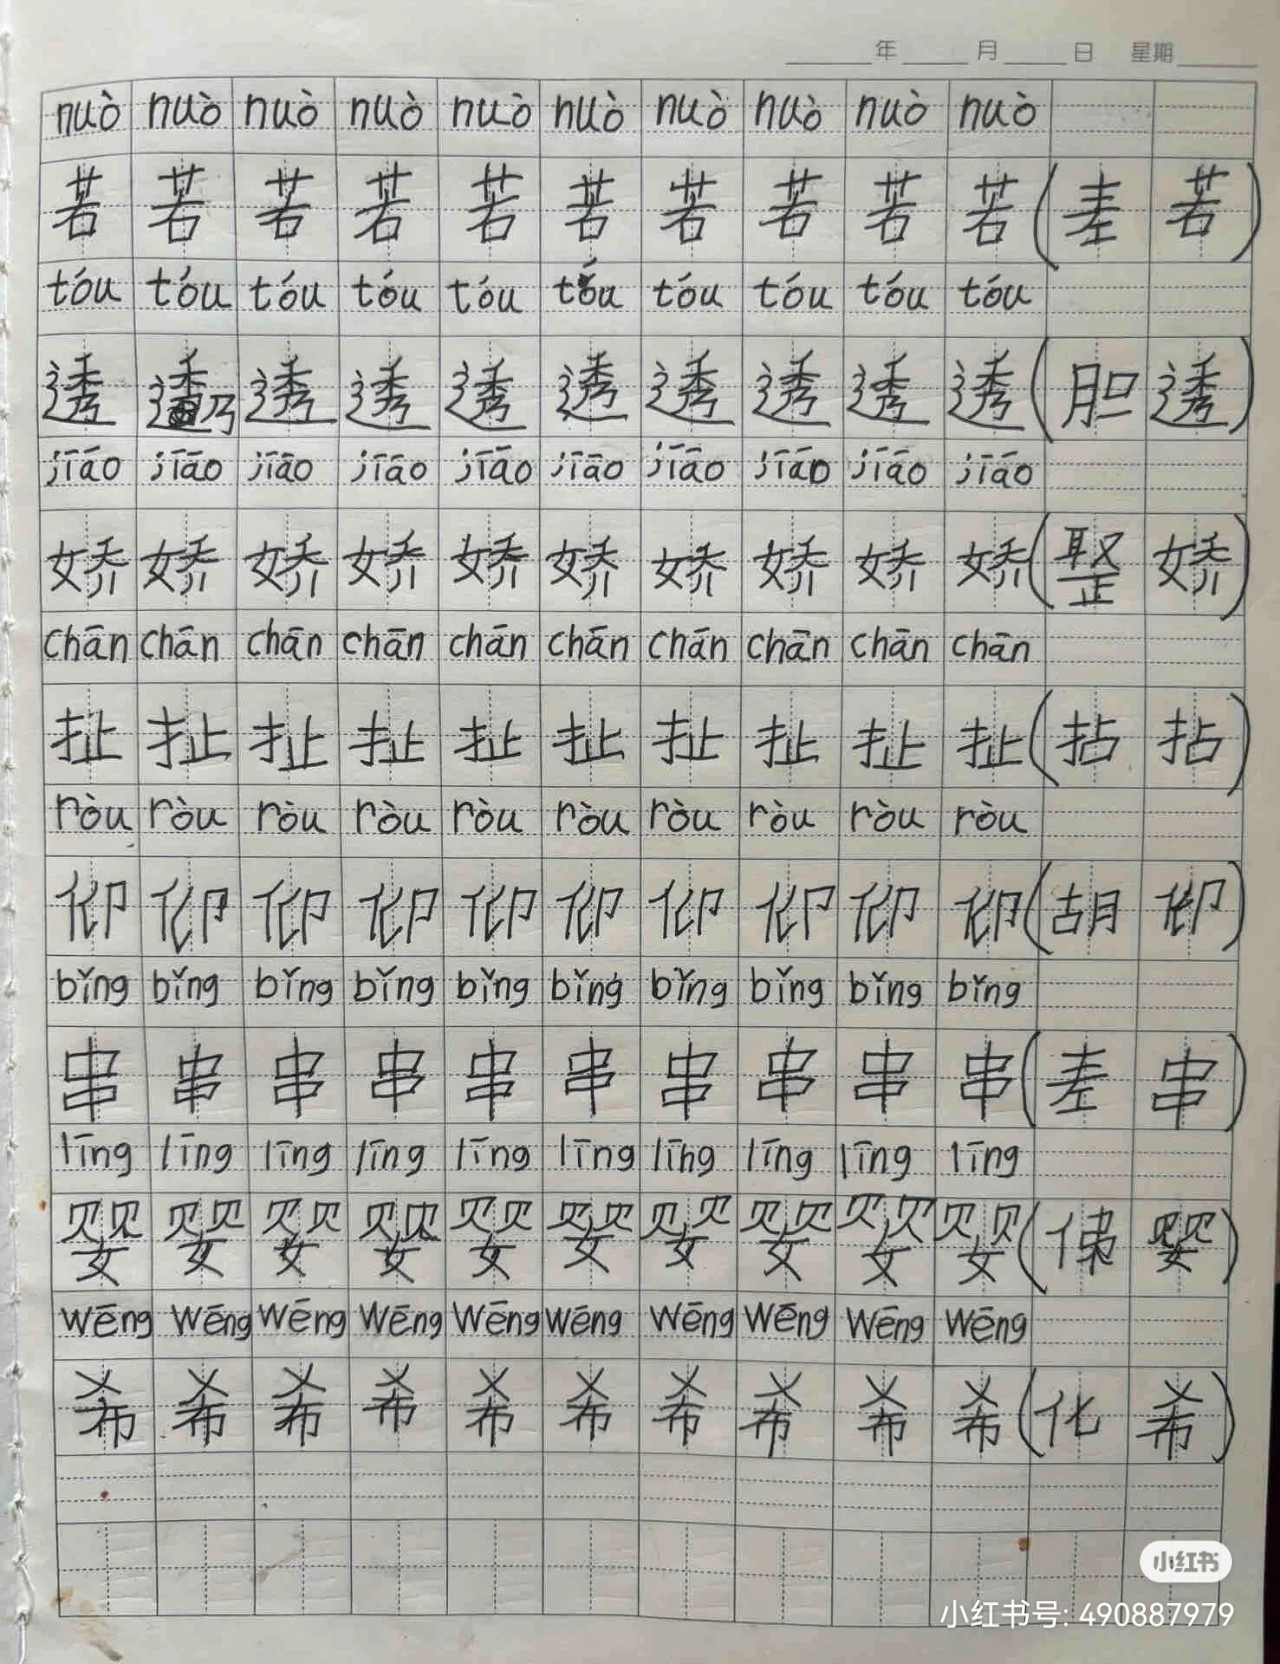 年 月 日 星期
nuò nuò nuò nuò nuò nuò nuò nuò nuò nuò
若 若 若 若 若 若 若 若 若 若 (差 若)
tóu tóu tóu tóu tóu tóu tóu tóu tóu tóu
透 透 透 透 透 透 透 透 透 透 (胆 透)
jiāo jiāo jiāo jiāo jiāo jiāo jiāo jiāo jiāo jiāo
娇 娇 娇 娇 娇 娇 娇 娇 娇 娇 ( 娇)
chān chān chān chān chān chān chān chān chān chān
扯 扯 扯 扯 扯 扯 扯 扯 扯 扯 (拈 拈)
ròu ròu ròu ròu ròu ròu ròu ròu ròu ròu
(胡 )
bǐng bǐng bǐng bǐng bǐng bǐng bǐng bǐng bǐng bǐng
串 串 串 串 串 串 串 串 串 串 (差 串)
līng līng līng līng līng līng līng līng līng līng
婴 婴 婴 婴 婴 婴 婴 婴 婴 婴 ( 婴)
wēng wēng wēng wēng wēng wēng wēng wēng wēng wēng
希 希 希 希 希 希 希 希 希 希 (化 希)
小红书
小红书号: 490887979